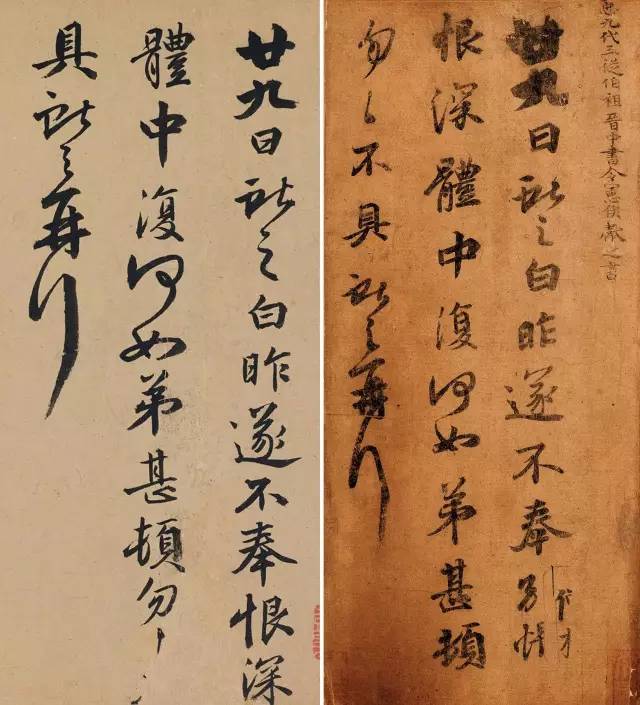 廿九日獻之白昨遂不奉恨深
體中復何如弟甚頓勿々
具獻之再拜
𢘑九代三從伯祖晉中書令憲侯獻之書
廿九日獻之白昨遂不奉別悵
恨深體中復何如弟甚頓
勿々不具獻之再拜